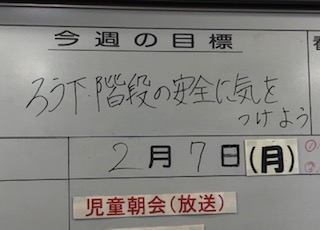 今週の目標
ろう下・階段の安全に気を
つけよう
2月7日(月)
児童朝会(放送)